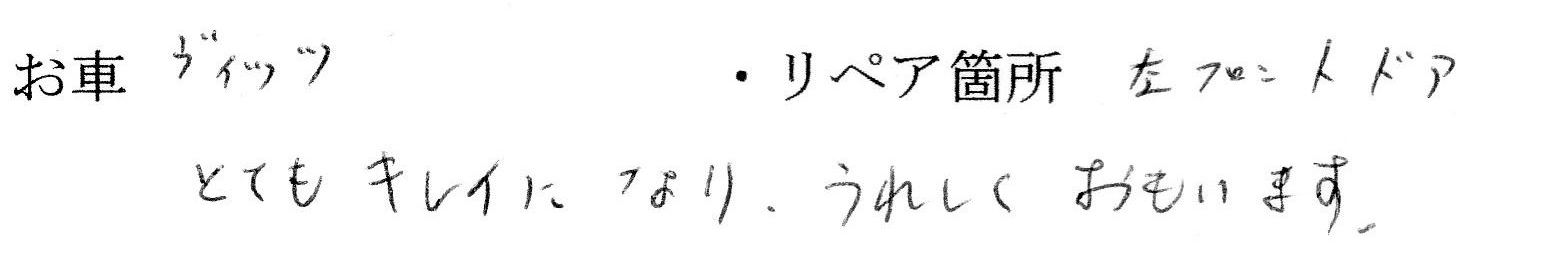 お車 ヴィッツ ・リペア箇所 左フロントドア
とてもキレイになり、うれしくおもいます。